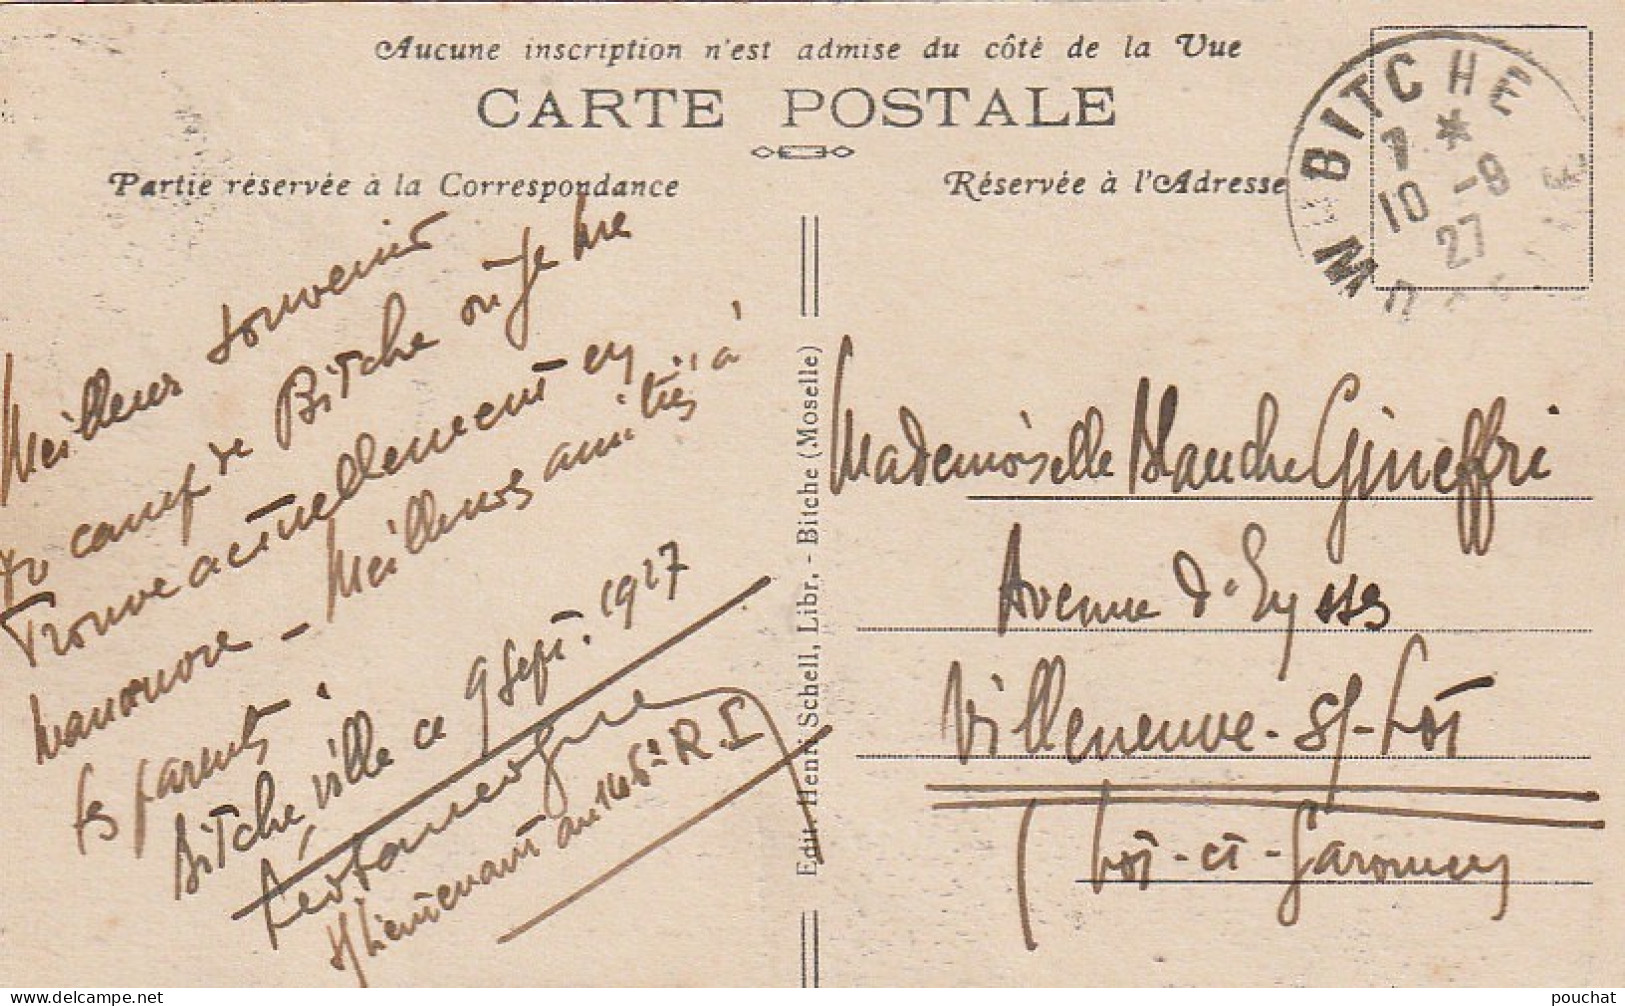 Aucune inscription n'est admise du côté de la Vue
CARTE POSTALE
Partie réservée à la Correspondance
Réservée à l'Adresse
BITCHE
7 *
10 -9
27
Meilleur souvenir
du camp de Bitche où je me
trouve actuellement en
manœuvre - Meilleures amitiés à
tes parents.
Bitche, ville ce 9 Sept. 1927
S/Lieutenant au 146e R.I
Edit. Henri Schell, Libr. - Bitche (Moselle)
Mademoiselle Blanche Gineffri
Avenue d'Eysses
Villeneuve-S/-Lot
(Lot-et-Garonne)
pouchat